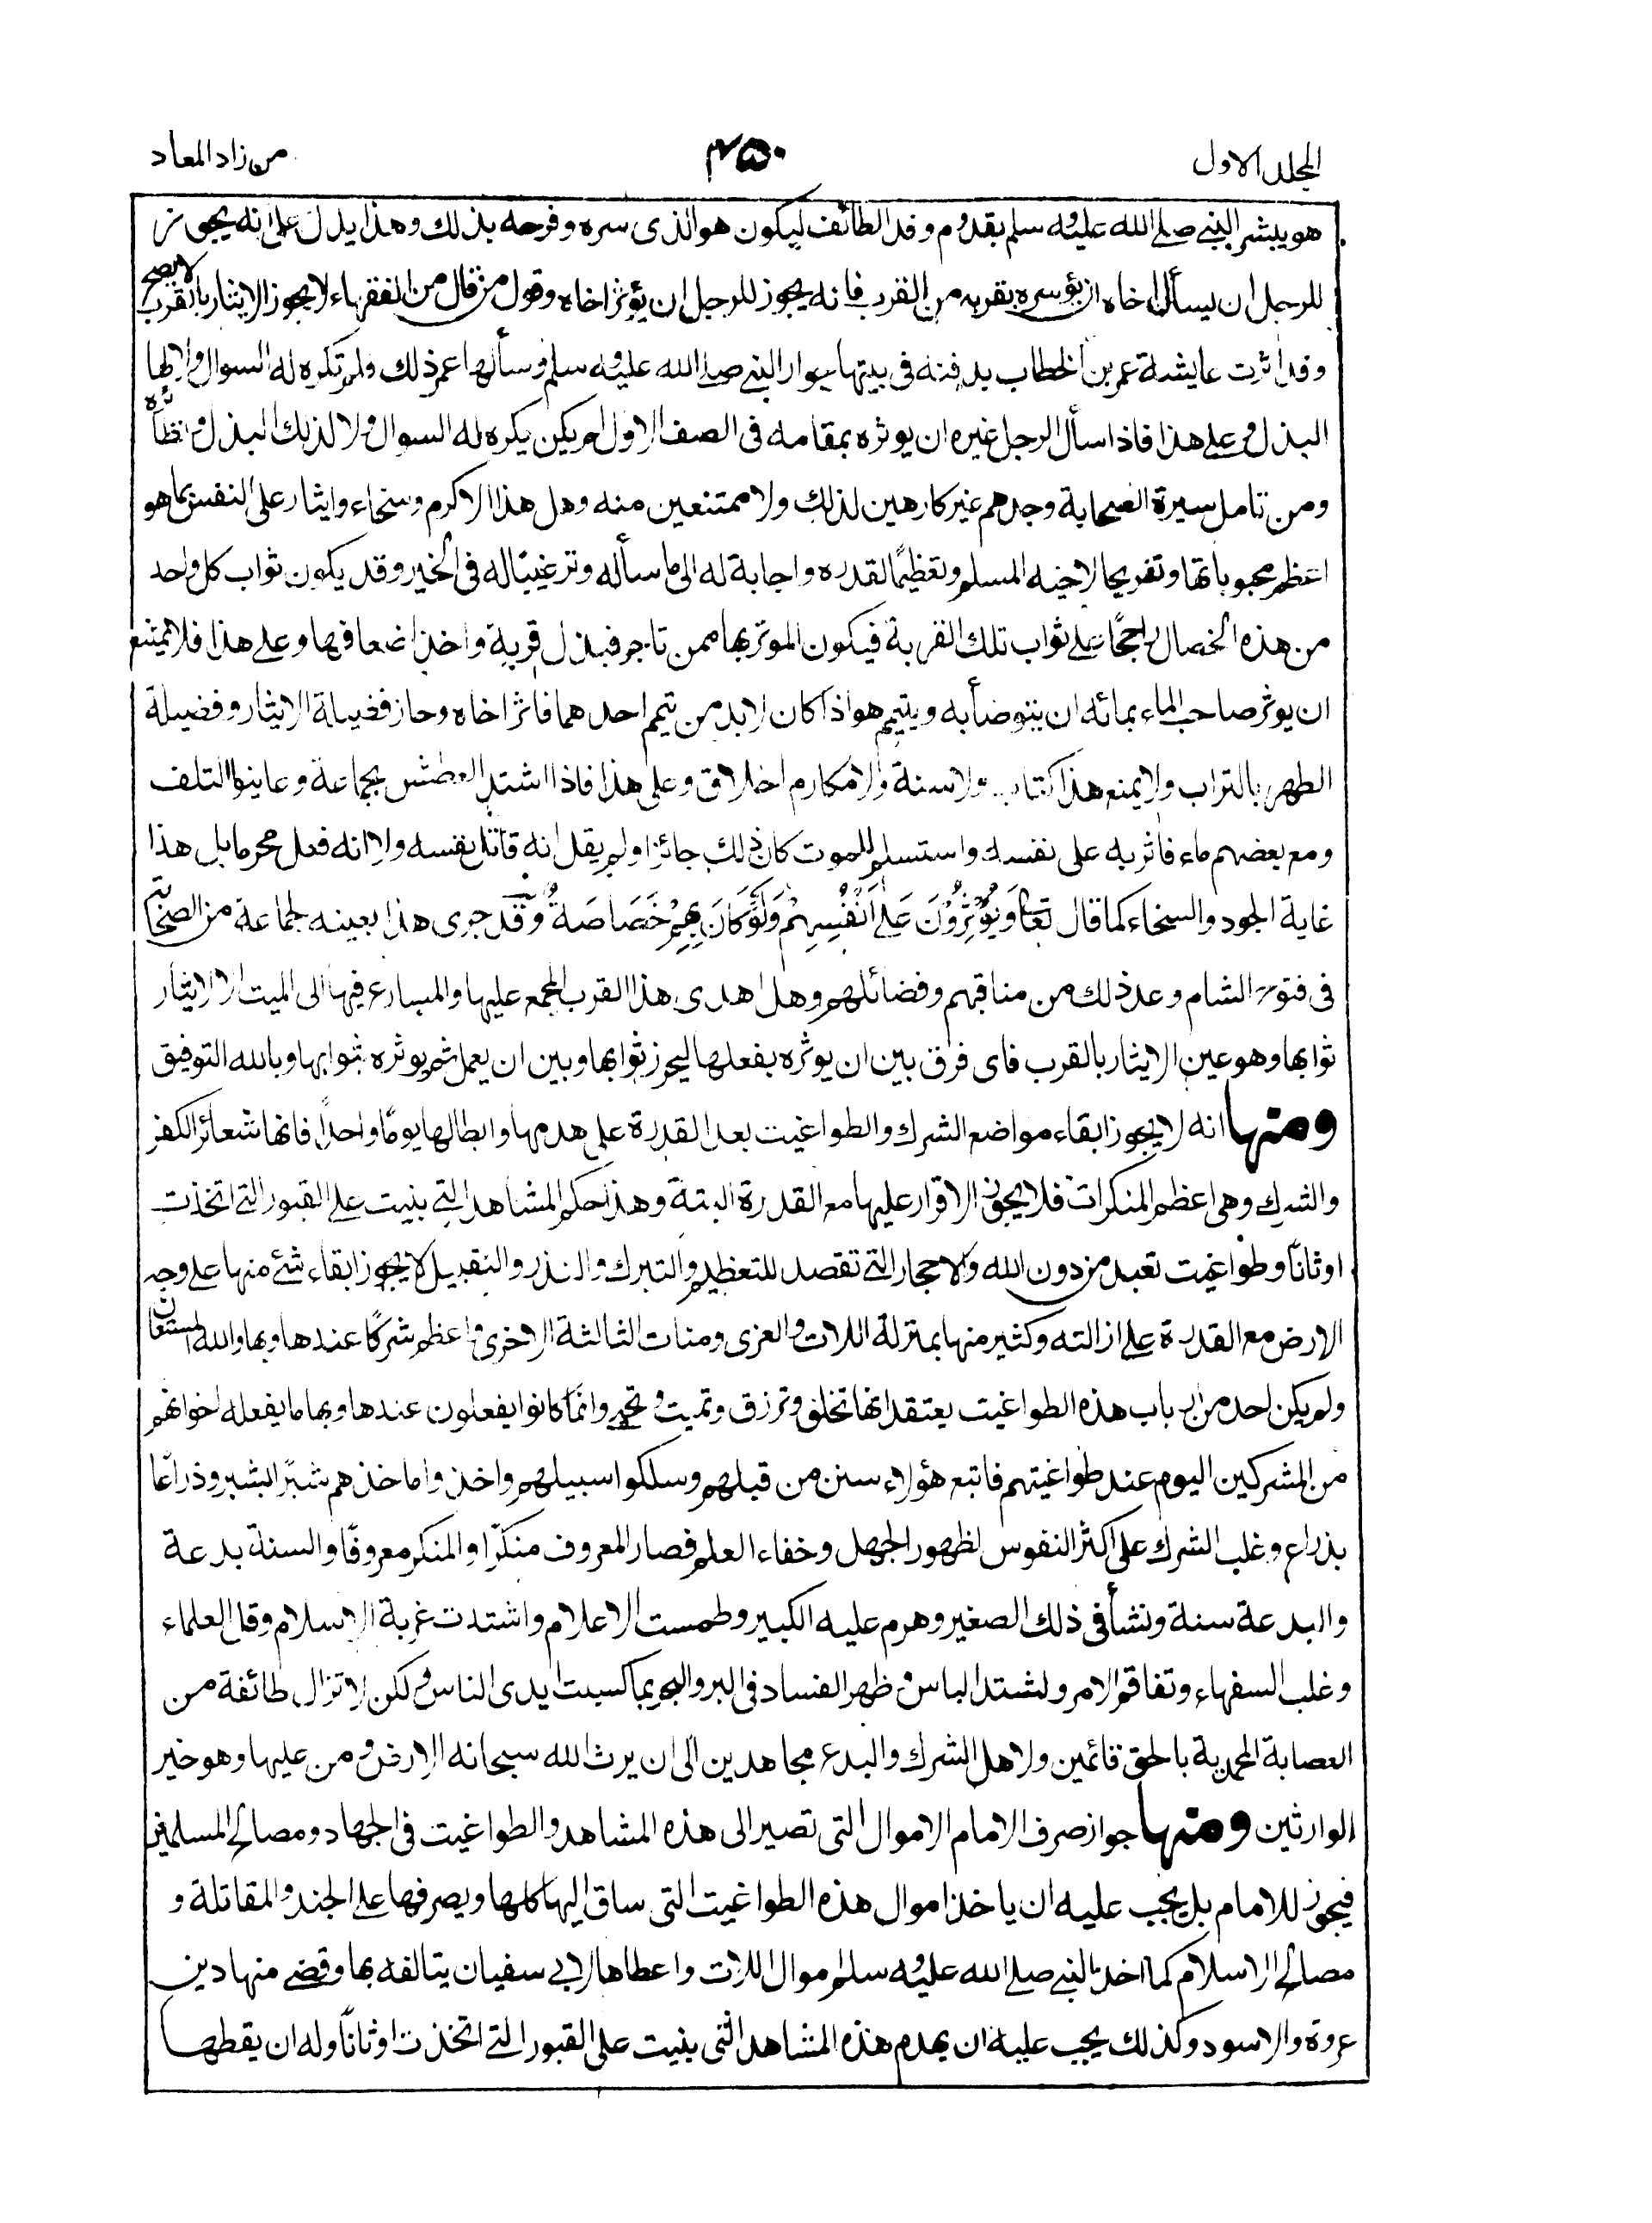 المجلد الاول
٤٥٠
من زاد المعاد
هو يبشر النبي صلى الله عليه وسلم بقدوم وفد الطائف ليكون هو الذى سره وفرحه بذلك وهذا يدل على انه يجوز
للرجل ان يسأل اخاه ان يؤثره بقربه من القرب فانه يجوز للرجل ان يؤثر اخاه وقول من قال من الفقهاء لا يجوز الايثار بالقرب لا يصح
وقد اثرت عايشة عمر بن الخطاب بدفنه فى بيتها بجوار النبي صلى الله عليه وسلم وسألها عمر ذلك ولم تكره له السوال ولا لها
البذل وعلى هذا فاذا سأل الرجل غيره ان يوثره بمقامه فى الصف الاول لم يكن يكره له السوال ولا لذلك البذل ونظائره
ومن تامل سيرة الصحابة وجدهم غير كارهين لذلك ولا ممتنعين منه وهل هذا الا كرم وسخاء وايثار على النفس بما هو
اعظم محبوباتها وتفريحا لاخيه المسلم وتعظيمًا لقدره واجابة له الى ما سأله وترغيبًا له فى الخير وقد يكون ثواب كل واحد
من هذه الخصال راجحًا على ثواب تلك القربة فيكون الموثر بها ممن تاجر فبذل قربة واخذ اضعافها وعلى هذا فلا يمتنع
ان يوثر صاحب الماء بمائه ان يتوضأ به ويتيمم هو اذا كان لا بد من تيمم احدهما فاثر اخاه وحاز فضيلة الايثار وفضيلة
الطهر بالتراب ولا يمنع هذا كتاب ولا سنة ولا مكارم اخلاق وعلى هذا فاذا اشتد العطش بجماعة وعاينوا التلف
ومع بعضهم ماء فاثر به على نفسه واستسلم للموت كان ذلك جائزا ولم يقل انه قاتل نفسه ولا انه فعل محرما بل هذا
غاية الجود والسخاء كما قال تعالى وَيُؤْثِرُوْنَ عَلىٰ اَنْفُسِهِمْ وَلَوْ كَانَ بِهِمْ خَصَاصَةٌ وقد جرى هذا بعينه لجماعة من الصحابة
فى فتوح الشام وعد ذلك من مناقبهم وفضائلهم وهل اهدى هذا القرب المجمع عليها والمسارع فيها الى الميت الا الايثار
ثوابها وهو عين الايثار بالقرب فاى فرق بين ان يوثره بفعلها ليحرز ثوابها وبين ان يعمل ثم يوثره بثوابها وبالله التوفيق
ومنها انه لا يجوز ابقاء مواضع الشرك والطواغيت بعد القدرة على هدمها وابطالها يومًا واحدًا فانها شعائر الكفر
والشرك وهى اعظم المنكرات فلا يجوز الاقرار عليها مع القدرة البتة وهذا حكم المشاهد التي بنيت على القبور التي اتخذت
اوثانًا وطواغيت تعبد من دون الله والاحجار التي تقصد للتعظيم والتبرك والنذر والتقبيل لا يجوز ابقاء شئ منها على وجه
الارض مع القدرة على ازالته وكثير منها بمنزلة اللات والعزى ومنات الثالثة الاخرى واعظم شركًا عندها وبها والله المستعان
ولم يكن احد من ارباب هذه الطواغيت يعتقد انها تخلق وترزق وتميت وتحيي وانما كانوا يفعلون عندها وبها ما يفعله اخوانهم
من المشركين اليوم عند طواغيتهم فاتبع هؤلاء سنن من قبلهم وسلكوا سبيلهم واخذوا ما خذهم شبرًا بشبر وذراعًا
بذراع وغلب الشرك على اكثر النفوس لظهور الجهل وخفاء العلم فصار المعروف منكرًا والمنكر معروفًا والسنة بدعة
والبدعة سنة ونشأ فى ذلك الصغير وهرم عليه الكبير وطمست الاعلام واشتدت غربة الاسلام وقل العلماء
وغلب السفهاء وتفاقم الامر واشتد الباس وظهر الفساد فى البر والبحر بما كسبت ايدى الناس ولكن لا تزال طائفة من
العصابة المحمدية بالحق قائمين ولاهل الشرك والبدع مجاهدين الى ان يرث الله سبحانه الارض ومن عليها وهو خير
الوارثين ومنها جواز صرف الامام الاموال التى تصير الى هذه المشاهد والطواغيت فى الجهاد ومصالح المسلمين
فيجوز للامام بل يجب عليه ان ياخذ اموال هذه الطواغيت التى ساق اليها كلها ويصرفها على الجند والمقاتلة و
مصالح الاسلام كما اخذ النبي صلى الله عليه وسلم اموال اللات واعطاها لابي سفيان يتالفه بها وقضى منها دين
عروة والاسود وكذلك يجب عليه ان يهدم هذه المشاهد التى بنيت على القبور التي اتخذت اوثانًا وله ان يقطعها